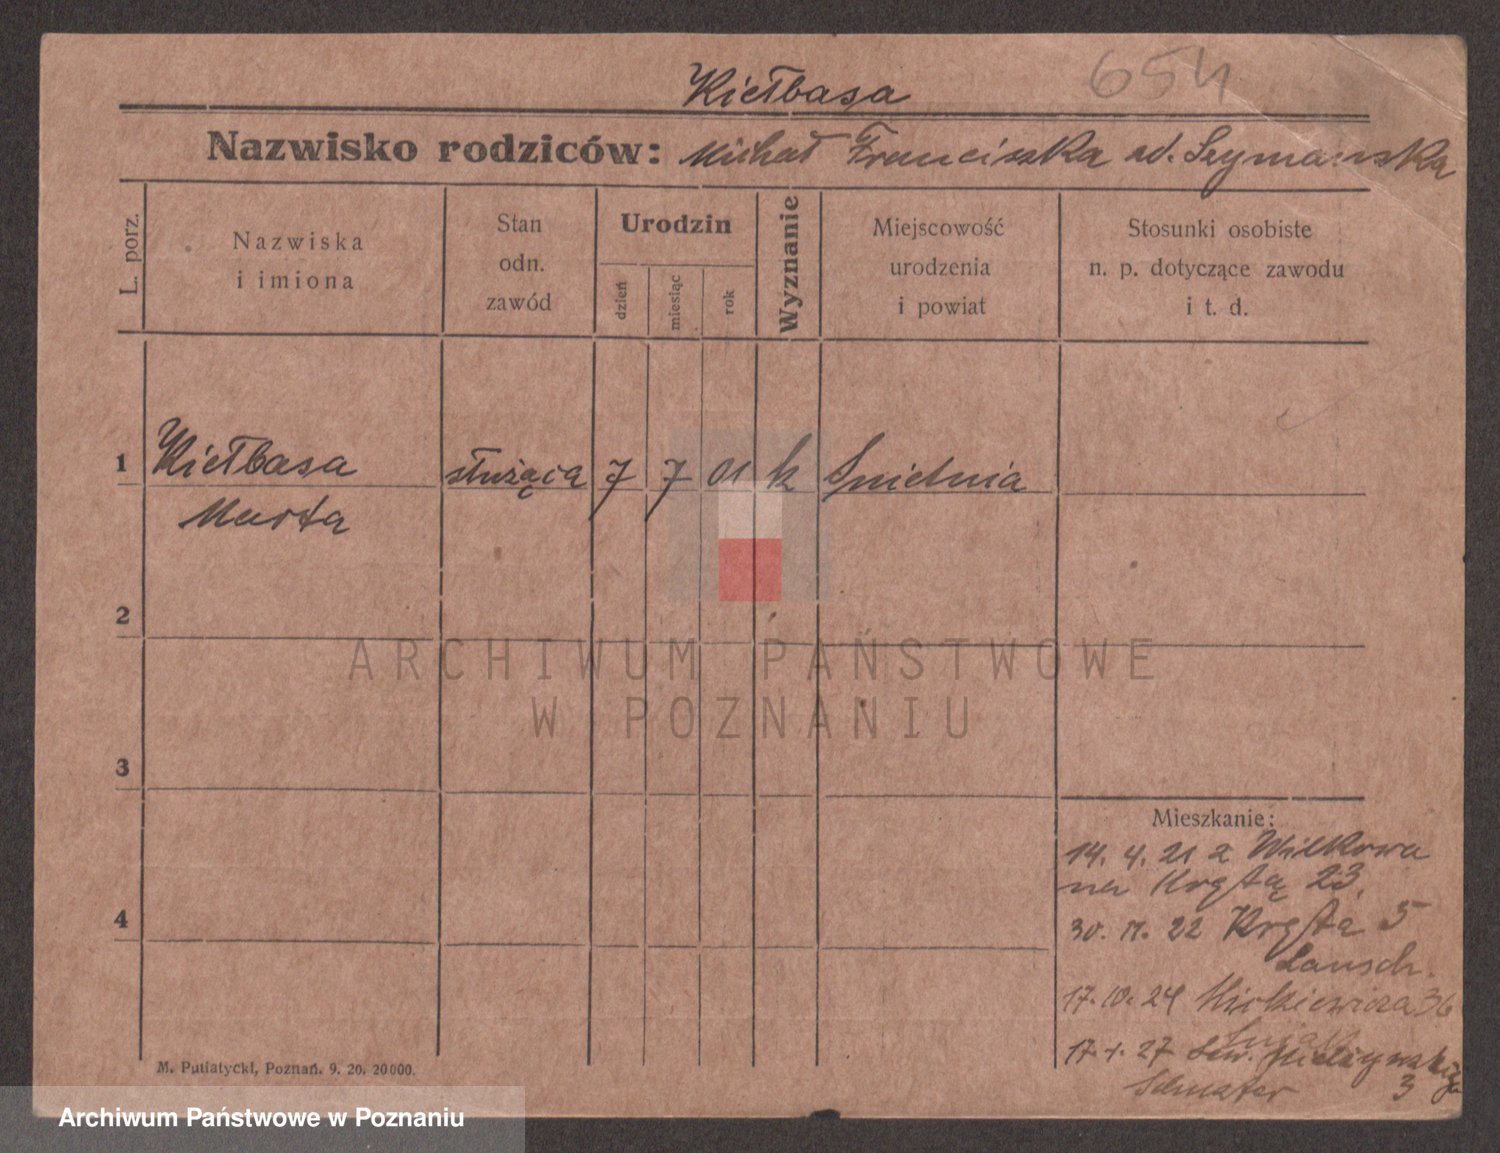 654
Kiełbasa
Nazwisko rodziców: Michał Franciszka zd. Szymańska
L. porz.
Nazwiska
i imiona
Stan
odn.
zawód
Urodzin
dzień
miesiąc
rok
Wyznanie
Miejscowość
urodzenia
i powiat
Stosunki osobiste
n. p. dotyczące zawodu
i t. d.
1 Kiełbasa służąca 7 7 01 k
Marta
2
ARCHIWUM PAŃSTWOWE
W POZNANIU
3
Mieszkanie:
14. 4. 21 z Wilkowa
na Krętą 23.
4
30. 11. 22 Kręta 5
17. 10. 24 Mickiewicza 36
17. 1. 27 Sew. Mielżyńskiego
3
M. Putiatycki, Poznań. 9. 20. 20000.
Archiwum Państwowe w Poznaniu